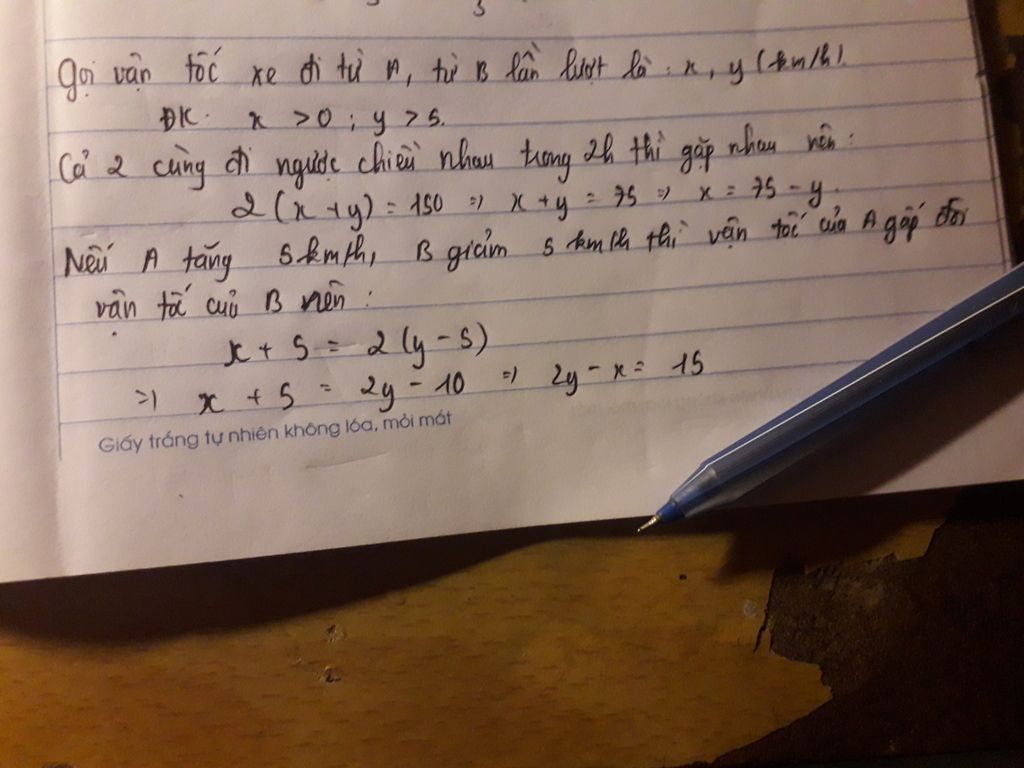 Gọi vận tốc xe đi từ A, từ B lần lượt là: x, y (km/h).
ĐK: x > 0; y > 5.
Cả 2 cùng đi ngược chiều nhau trong 2h thì gặp nhau nên:
2(x+y) = 150 => x+y = 75 => x = 75 - y.
Nếu A tăng 5 km/h, B giảm 5 km/h thì vận tốc của A gấp đôi
vận tốc của B nên:
x + 5 = 2(y-5)
=> x + 5 = 2y - 10 => 2y - x = 15
Giấy trắng tự nhiên không lóa, mỏi mát